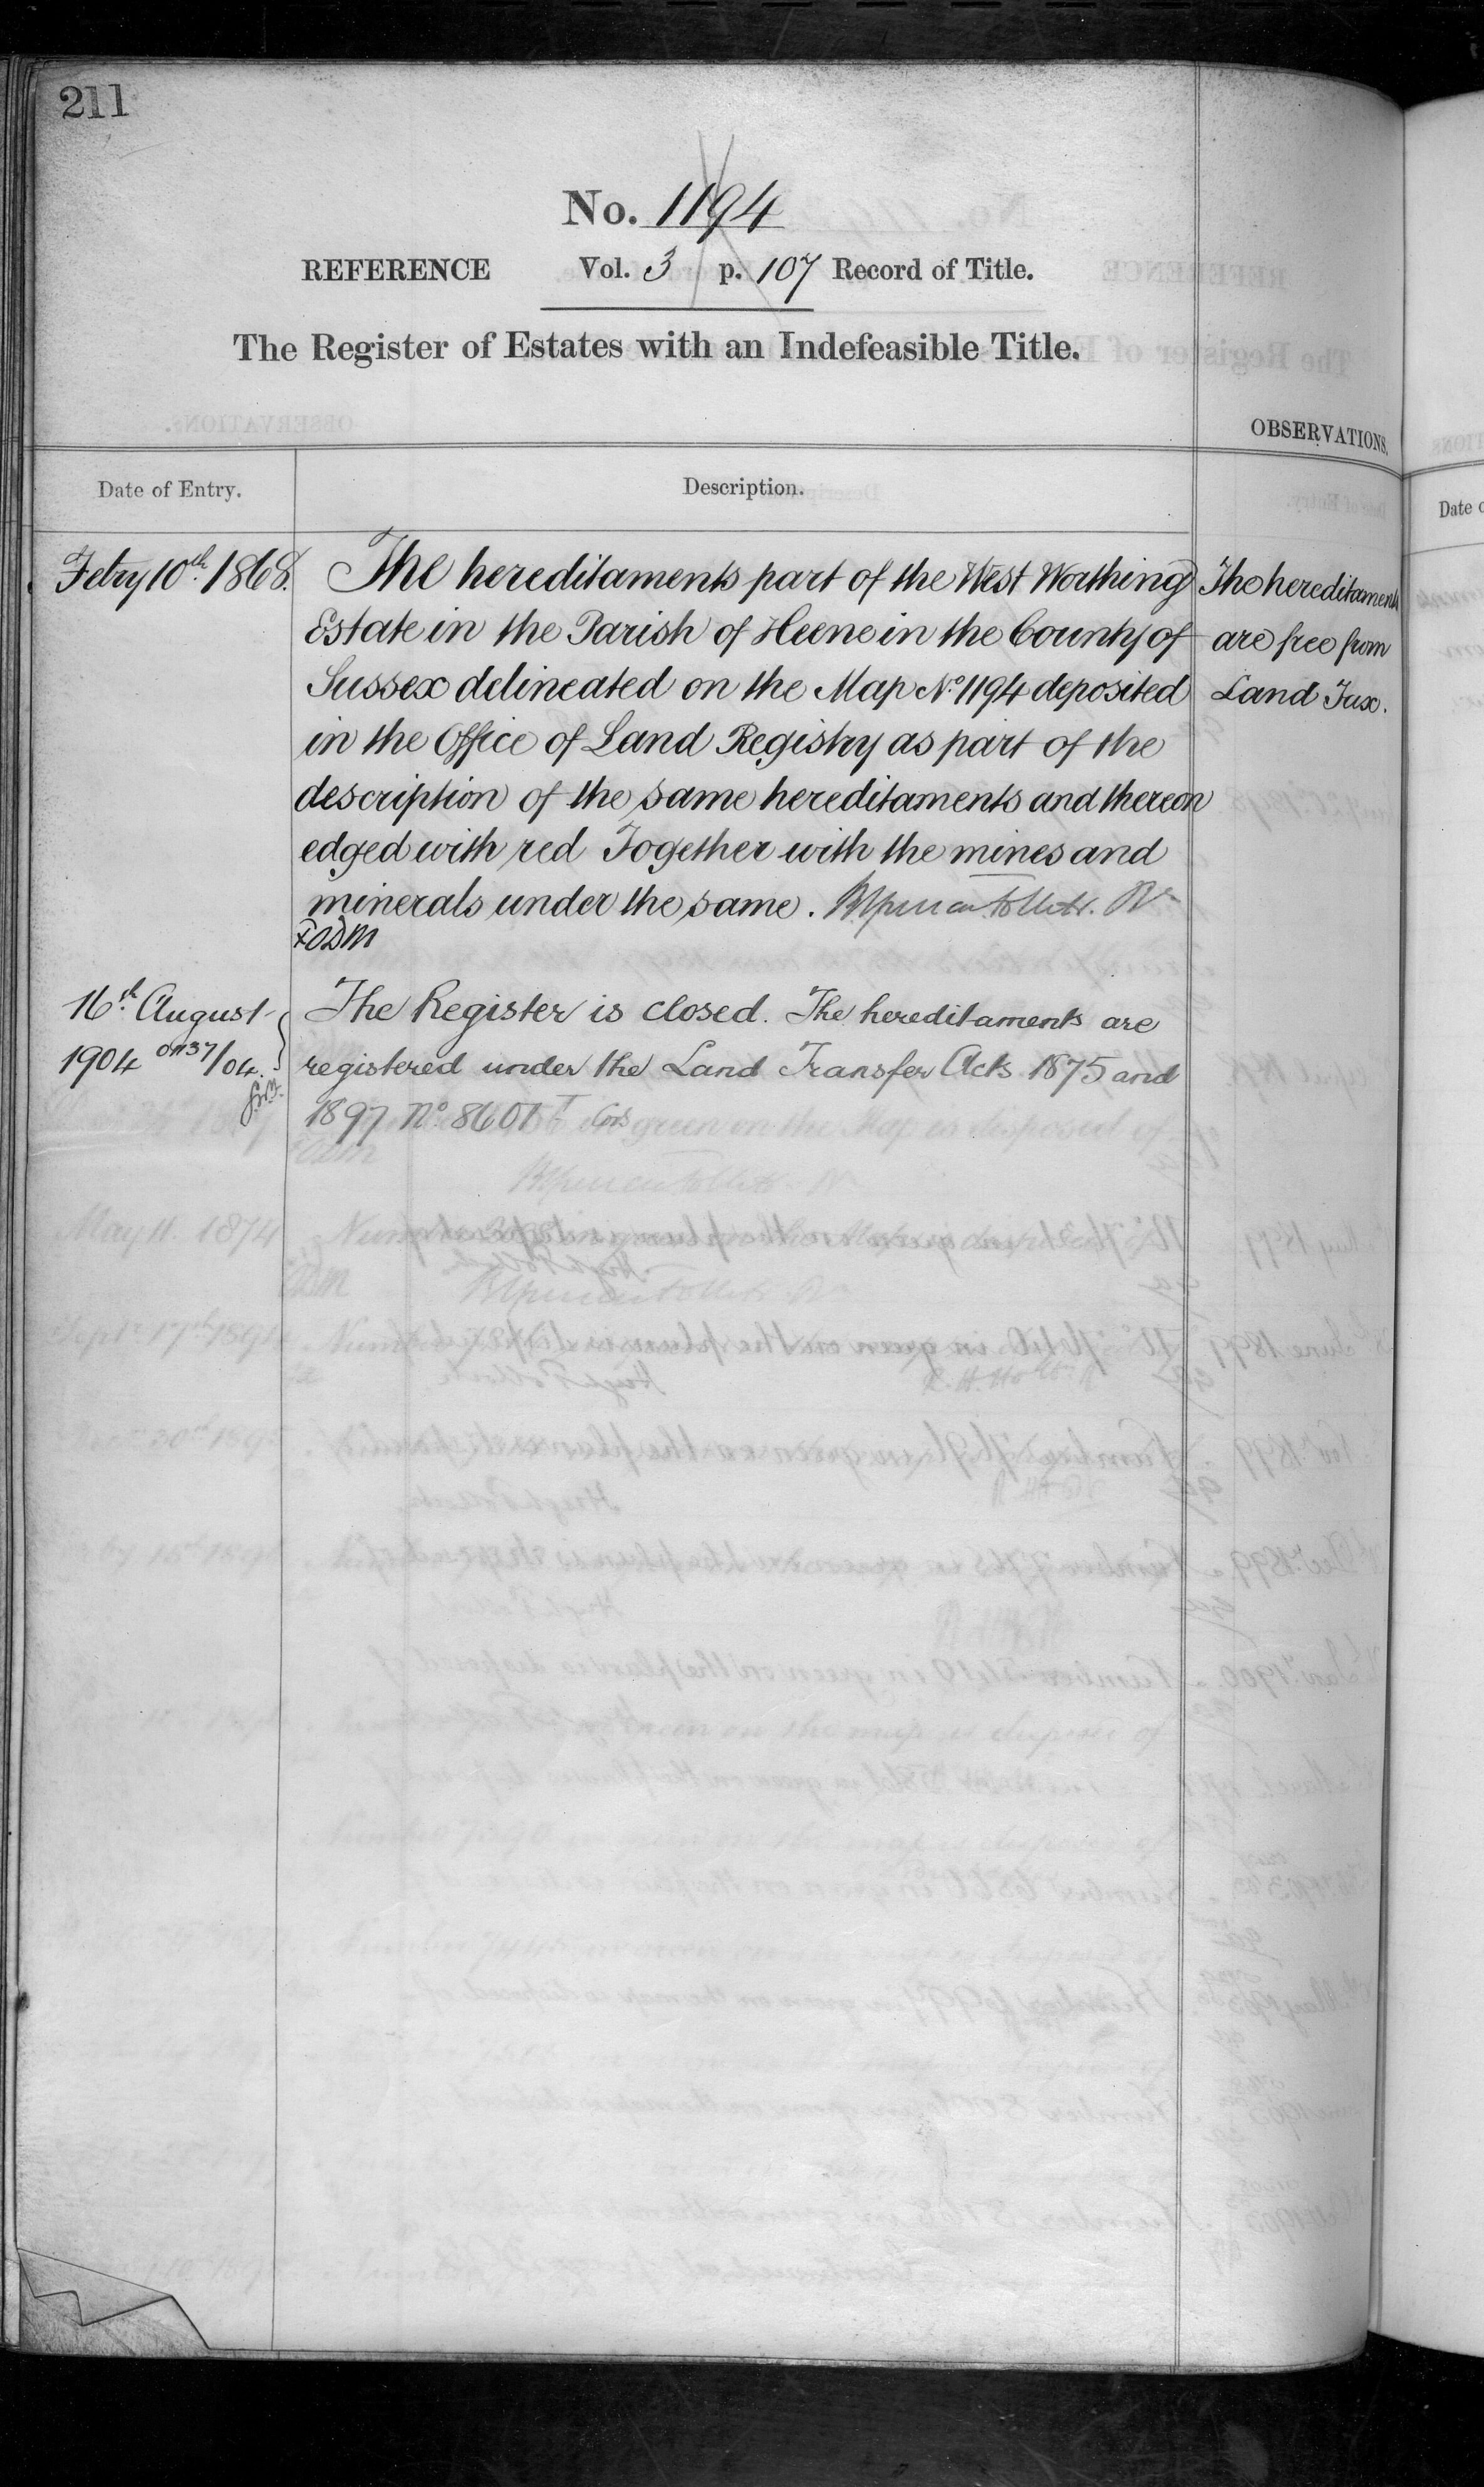 211
No. 1194
REFERENCE Vol. 3 p. 107 Record of Title.
The Register of Estates with an Indefeasible Title.
OBSERVATIONS.
Date of Entry.
Description.
Feby 10th. 1868.
The hereditaments part of the West Worthing
Estate in the Parish of Heene in the County of
Sussex delineated on the Map No. 1194 deposited
in the Office of Land Registry as part of the
description of the same hereditaments and thereon
edged with red Together with the mines and
minerals under the same.
The hereditaments
are free from
Land Tax.
16th. August
1904
The Register is closed. The hereditaments are
registered under the Land Transfer Acts 1875 and
1897 No. 8601